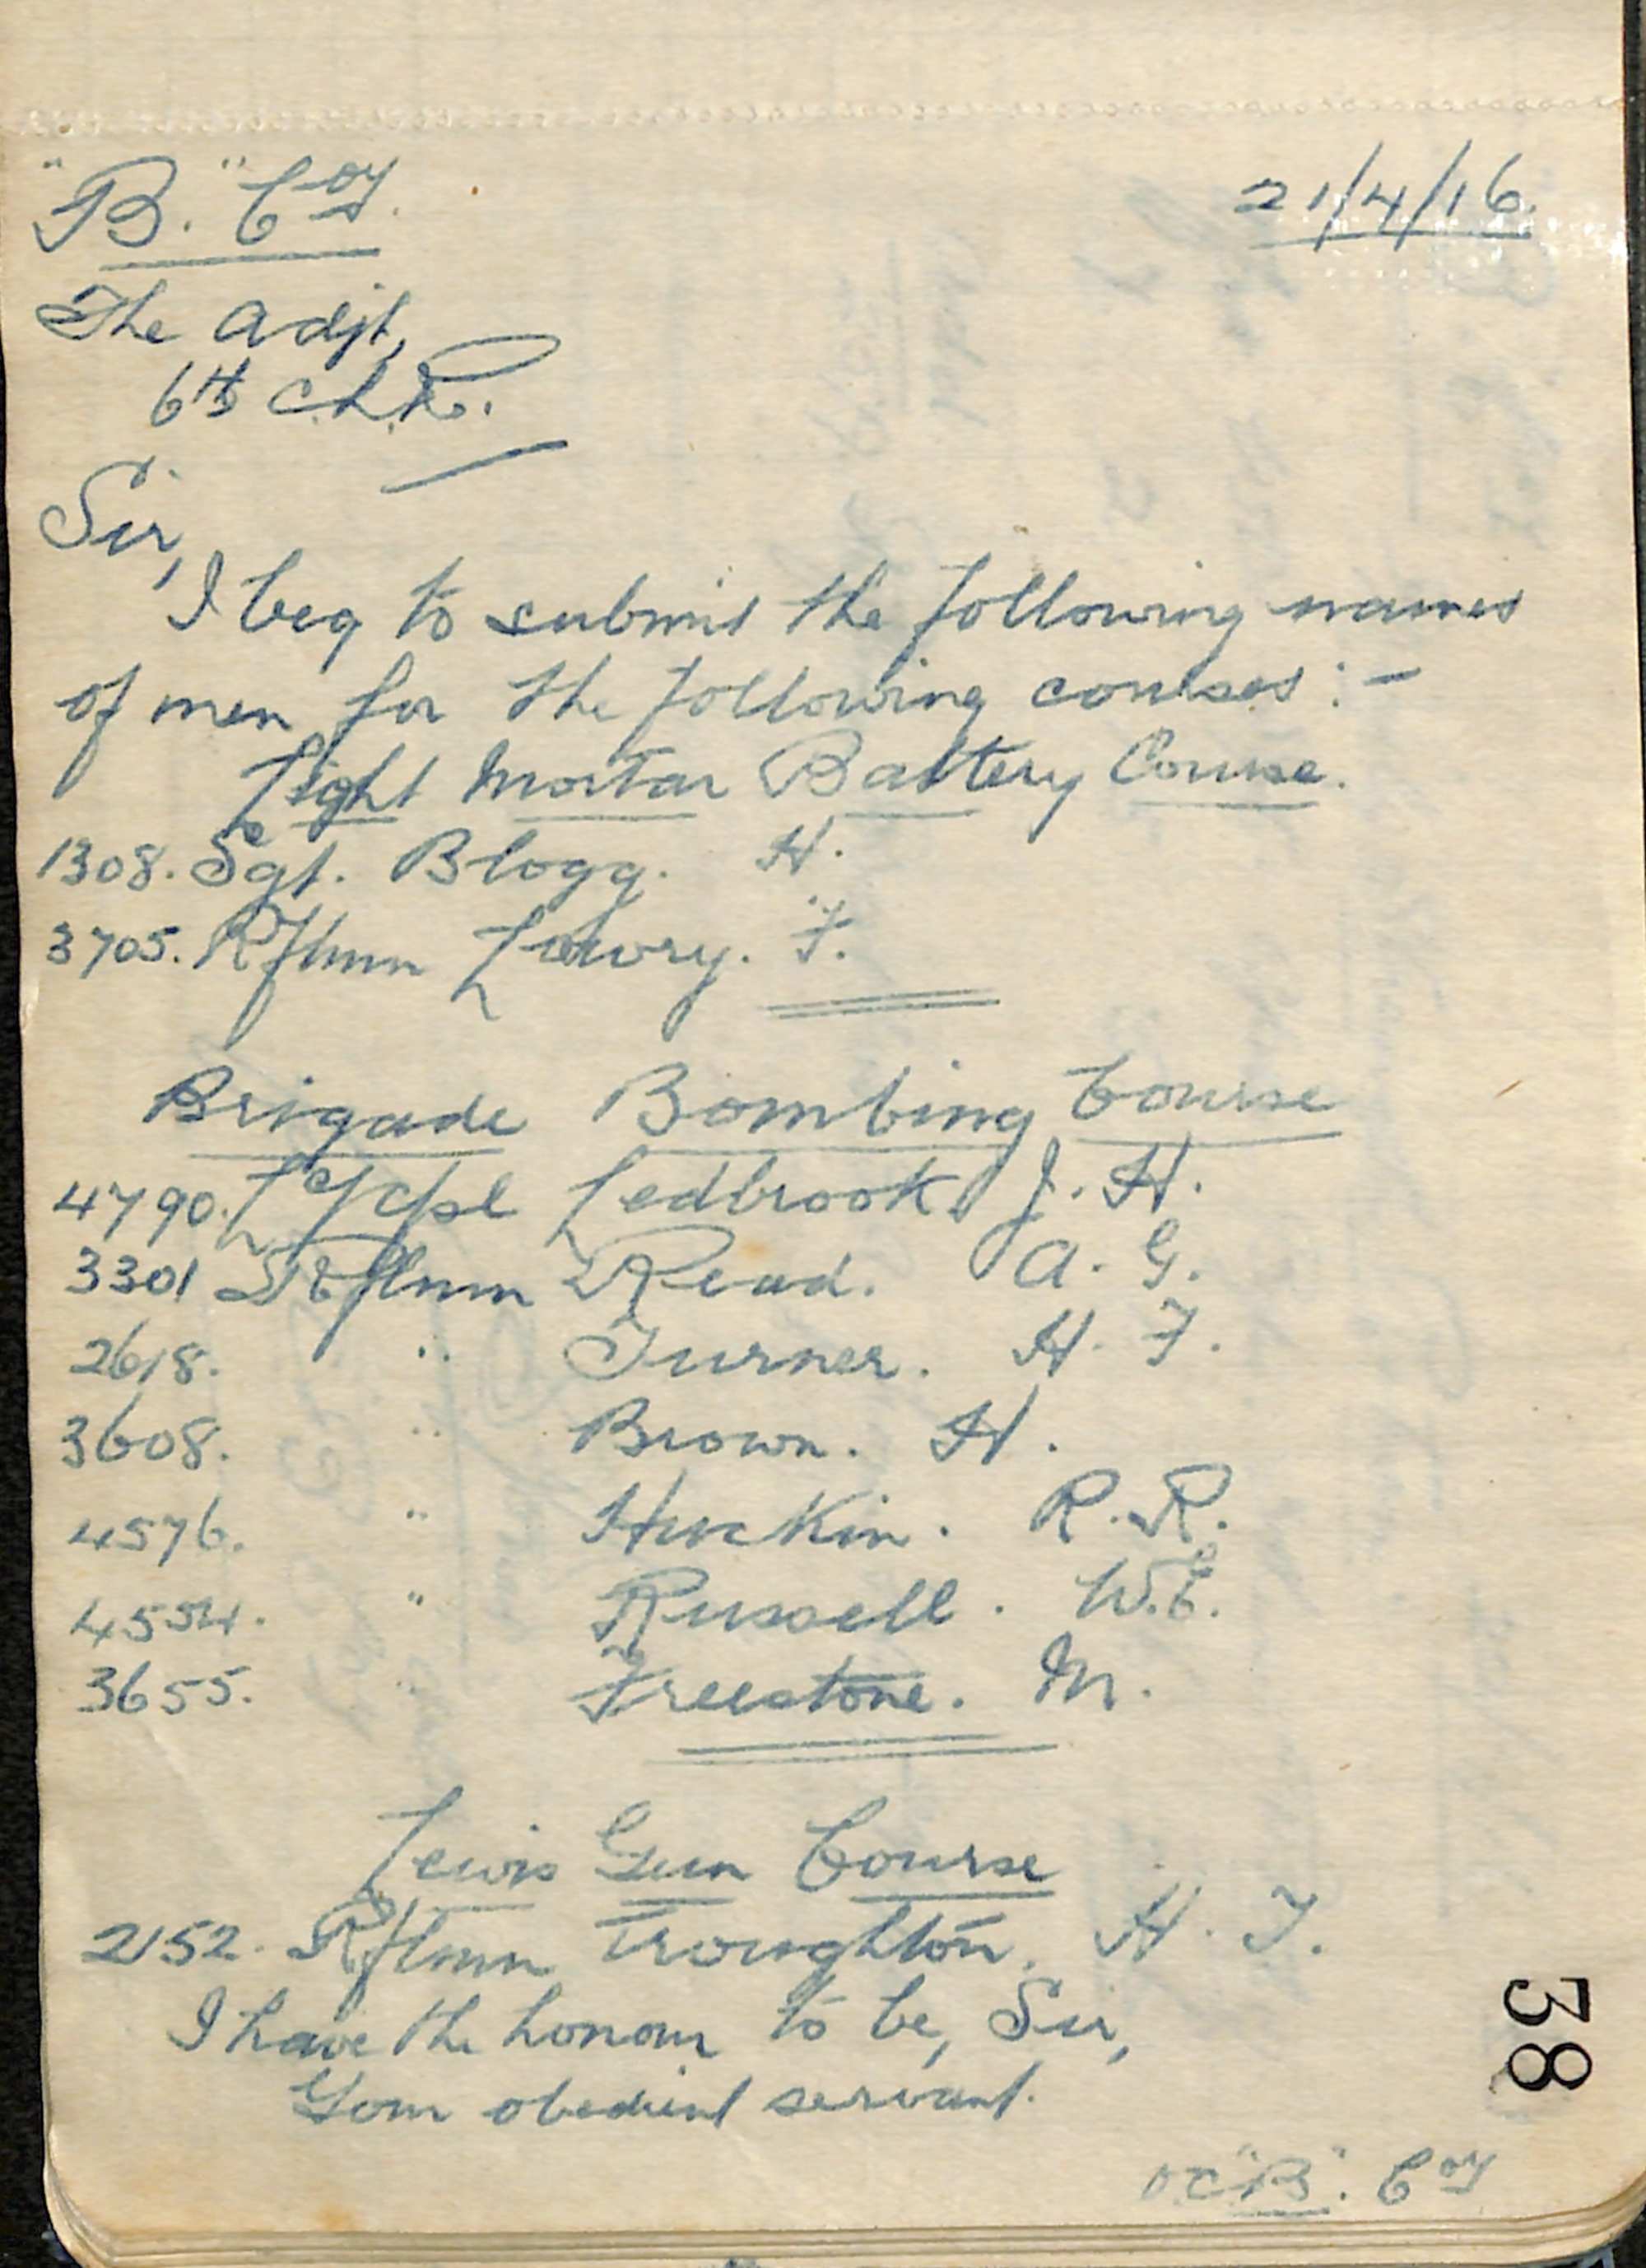 "B." Coy.
21/4/16.
The Adjt,
6th C.L.R.
Sir,
I beg to submit the following names
of men for the following courses :-
Light Mortar Battery Course.
1308. Sgt. Blogg. H.
3705. Rflmn Lowry. F.
Brigade Bombing Course
4790. L/Cpl Ledbrook J. H.
3301 Rflmn Read. A. G.
2618. " Turner. H. F.
3608. " Brown. H.
4576. " Huckin. R. R.
4554. " Russell. W.E.
3655. " Freestone. M.
Lewis Gun Course
2152. Rflmn Troughton. H. J.
I have the honour to be, Sir,
Your obedient servant.
OC "B". Coy
38